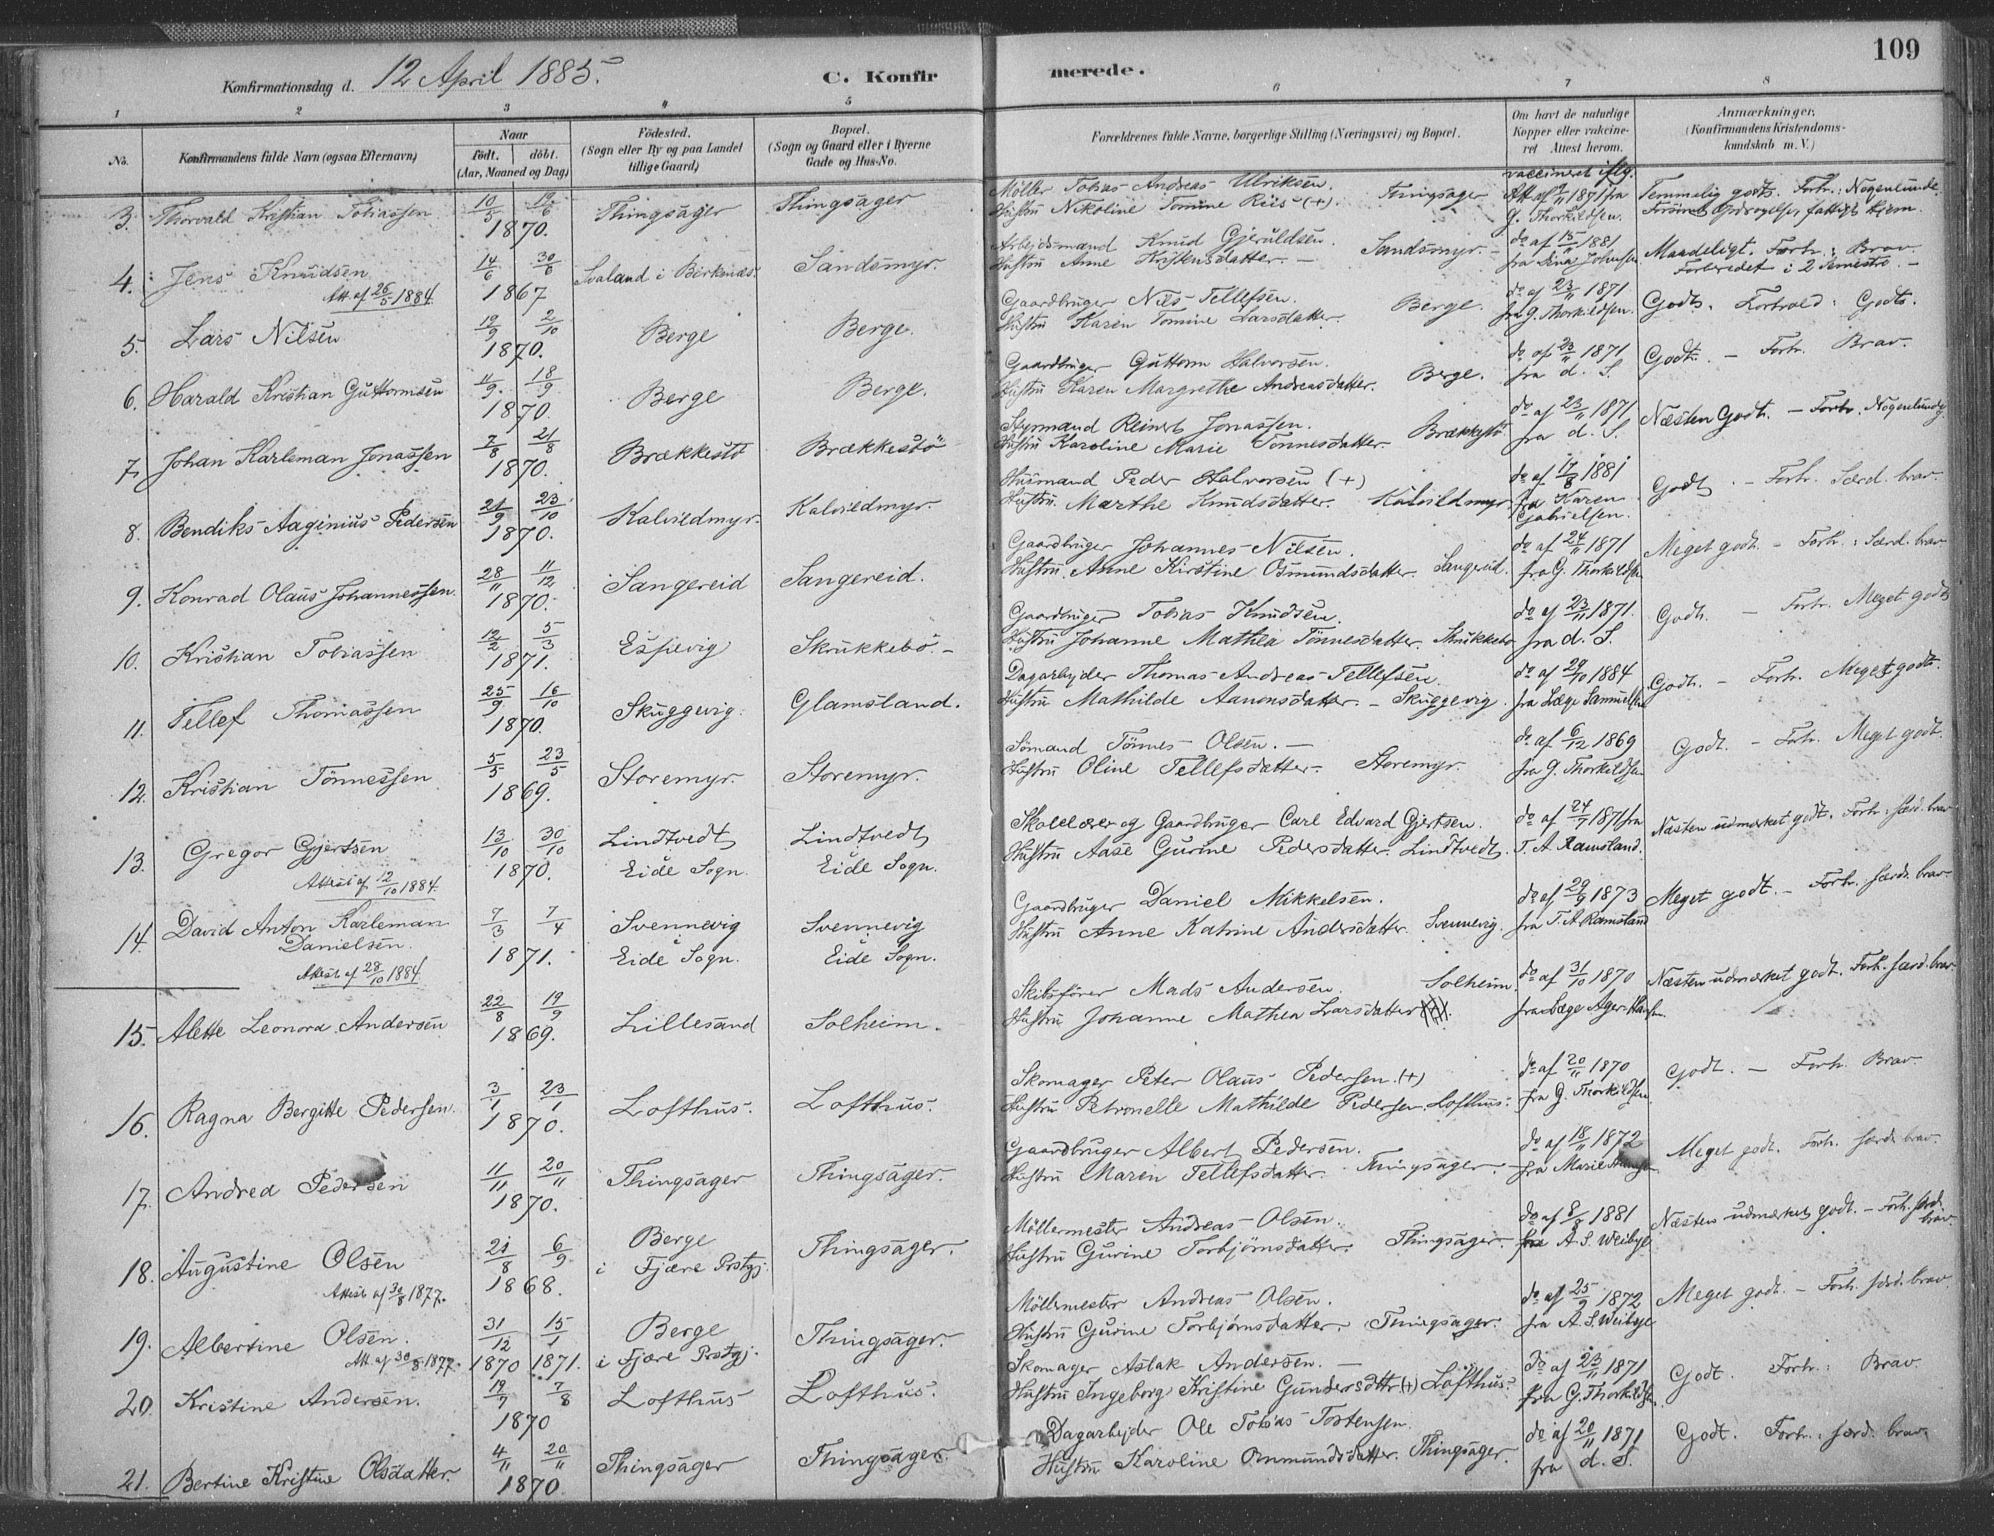 109
Konfirmationsdag d. 12 April 1885.
C. Konfirmerede.
1 2 3 4 5 6 7 8
No.
Konfirmandens fulde Navn (ogsaa Efternavn)
Naar
født. døbt.
(Aar, Maaned og Dag)
Fødested.
(Sogn eller By og paa Landet
tillige Gaard)
Bopæl.
(Sogn og Gaard eller i Byerne
Gade og Hus-No.
Forældrenes fulde Navne, borgerlige Stilling (Næringsvei) og Bopæl.
Om havt de naturlige
Kopper eller vakcine-
ret Attest herom.
Anmærkninger.
(Konfirmandens Kristendoms-
kundskab m. V.)
3. Thorvald Kristian Tobiassen 10/5 19/6 1870. Thingsager Thingsager
Møller Tobias Andreas Ulriksen.
Hustru Nikoline Tomine Riis (+) Thingsager
vaccineret iflg.
Att. af 9/11 1871 fra
G. Thorkildsen.
Temmelig godt. Forh.: Nogenlunde.
4. Jens Knudsen 14/6 30/6 1867 Svaland i Birkenæs Sandsmyr.
Att. af 26/5 1884.
Arbeidsmand Knud Gjeruldsen.
Hustru Anne Kristensdatter. Sandsmyr.
do af 15/11 1881
fra Lina Johnsen
Maadeligt. Forh.: Brav
Forberedet i 2 Semestre.
5. Lars Nilsen 19/9 2/10 1870. Berge Berge.
Gaardbruger Nils Tellefsen.
Hustru Karen Tomine Larsdatter. Berge.
do af 23/11 1871
fra G. Thorkildsen.
Godt. Forhold: Godt.
6. Harald Kristian Guttormsen 11/9 18/9 1870. Berge Berge.
Gaardbruger Guttorm Halvorsen.
Hustru Karen Margrethe Andreasdatter. Berge.
do af 23/11 1871
fra d. S.
Godt. – Forh. Brav.
7. Johan Karleman Jonassen 7/8 21/8 1870. Brækkestø Brækkestø
Styrmand Reinert Jonassen.
Hustru Karoline Marie Tønnesdatter. Brækkestø
do af 23/11 1871
fra d. S.
Næsten Godt. – Forh. Nogenlunde
8. Bendiks Aaginius Pedersen 21/9 23/10 1870. Kalvildmyr. Kalvildmyr.
Husmand Peder Halvorsen (+)
Hustru Marthe Knudsdatter. Kalvildmyr
do af 17/8 1881
fra Karen
Gabrielsen.
Godt – Forh. Særd. brav.
9. Konrad Olaus Johannessen. 28/11 11/12 1870. Sangereid Sangereid.
Gaardbruger Johannes Nilsen.
Hustru Anne Kirstine Osmundsdatter. Sangereid.
do af 24/11 1871
fra G. Thorkildsen
Meget godt. – Forh.: Særd. brav
10. Kristian Tobiassen 12/2 5/3 1871. Espevig Skrukkebø. –
Gaardbruger Tobias Knudsen.
Hustru Johanne Mathea Tønnesdatter. Skrukkebø
do af 23/11 1871.
fra d. S.
Godt. – Forh. Meget godt
11. Tellef Thomassen 25/9 16/10 1870. Skuggevig. Glamsland.
Dagarbeider Thomas Andreas Tellefsen.
Hustru Mathilde Aanonsdatter. – Skuggevig.
do af 29/10 1884
fra Læge Samuelsen
Godt. – Forh. Meget godt.
12. Kristian Tønnessen 5/5 23/5 1869. Storemyr. Storemyr.
Sømand Tønnes Olsen. –
Hustru Oline Tellefsdatter. Storemyr.
do af 6/12 1869
fra G. Thorkildsen
Godt. – Forh. Meget godt.
13. Gregor Gjertsen 13/10 30/10 1870. Lindtvedt Eide Sogn. Lindtvedt Eide Sogn.
Attest af 12/10 1884.
Skolelærer og Gaardbruger Carl Edvard Gjertsen.
Hustru Aase Gurine Pedersdatter. Lindtvedt.
do af 24/7 1871 fra
T. A. Ramsland.
Næsten udmærket godt. Forh.: særd. brav
14. David Anton Karleman Danielsen. 7/3 7/4 1871. Svennevig i Eide Sogn. Svennevig Eide Sogn.
Attest af 28/10 1884.
Gaardbruger Daniel Mikkelsen.
Hustru Anne Katrine Andersdatter. Svennevig.
do af 29/9 1873
fra T. A. Ramsland
Meget godt. – Forh.: særd. brav.
15. Alette Leonora Andersen 22/8 19/9 1869. Lillesand Solheim.
Skibsfører Mads Andersen. Solheim.
Hustru Johanne Mathea Larsdatter
do af 31/10 1870
fra Læge Ager-Hansen.
Næsten udmærket godt. Forh. særd. brav.
16. Ragna Bergitte Pedersen. 3/1 23/1 1870. Lofthus. Lofthus.
Skomager Peter Olaus Pedersen. (+)
Hustru Petronelle Mathilde Pedersen. Lofthus.
do af 20/11 1870
fra G. Thorkildsen.
Godt. – Forh. Brav.
17. Andrea Pedersen 11/11 20/11 1870. Thingsager Thingsager.
Gaardbruger Albert Pedersen.
Hustru Maren Tellefsdatter. Thingsager.
do af 18/11 1872
fra Marie
Meget godt. Forh. særd. brav.
18. Augustine Olsen 21/8 6/9 1868. Berge i Fjære Prstgj. Thingsager.
Attest af 30/8 1877.
Møllermester Andreas Olsen.
Hustru Gurine Torbjørnsdatter. Thingsager.
do af 8/8 1881
fra A. S. Weibye
Næsten udmærket godt. – Forh. særd. brav.
19. Albertine Olsen. 31/12 1870 15/1 1871. Berge i Fjære Prstgj. Thingsager.
Att. af 30/8 1877.
Møllermester Andreas Olsen.
Hustru Gurine Torbjørnsdatter. Thingsager.
do af 25/9 1872
fra A. S. Weibye
Meget godt. – Forh. særd. brav.
20. Kristine Andersen. 19/7 7/8 1870 Lofthus Lofthus.
Skomager Aslak Andersen. –
Hustru Ingeborg Kristine Gundersdttr. (+) Lofthus.
do af 23/11 1871
fra G. Thorkildsen
Godt. Forh.: Brav.
21. Bertine Kristine Olsdatter. 4/11 20/11 1870. Thingsager Thingsager.
Dagarbeider Ole Tobias Tostensen.
Hustru Karoline Osmundsdatter. Thingsager.
do af 20/11 1871
fra d. S.
Godt. Forh.: særd. brav.